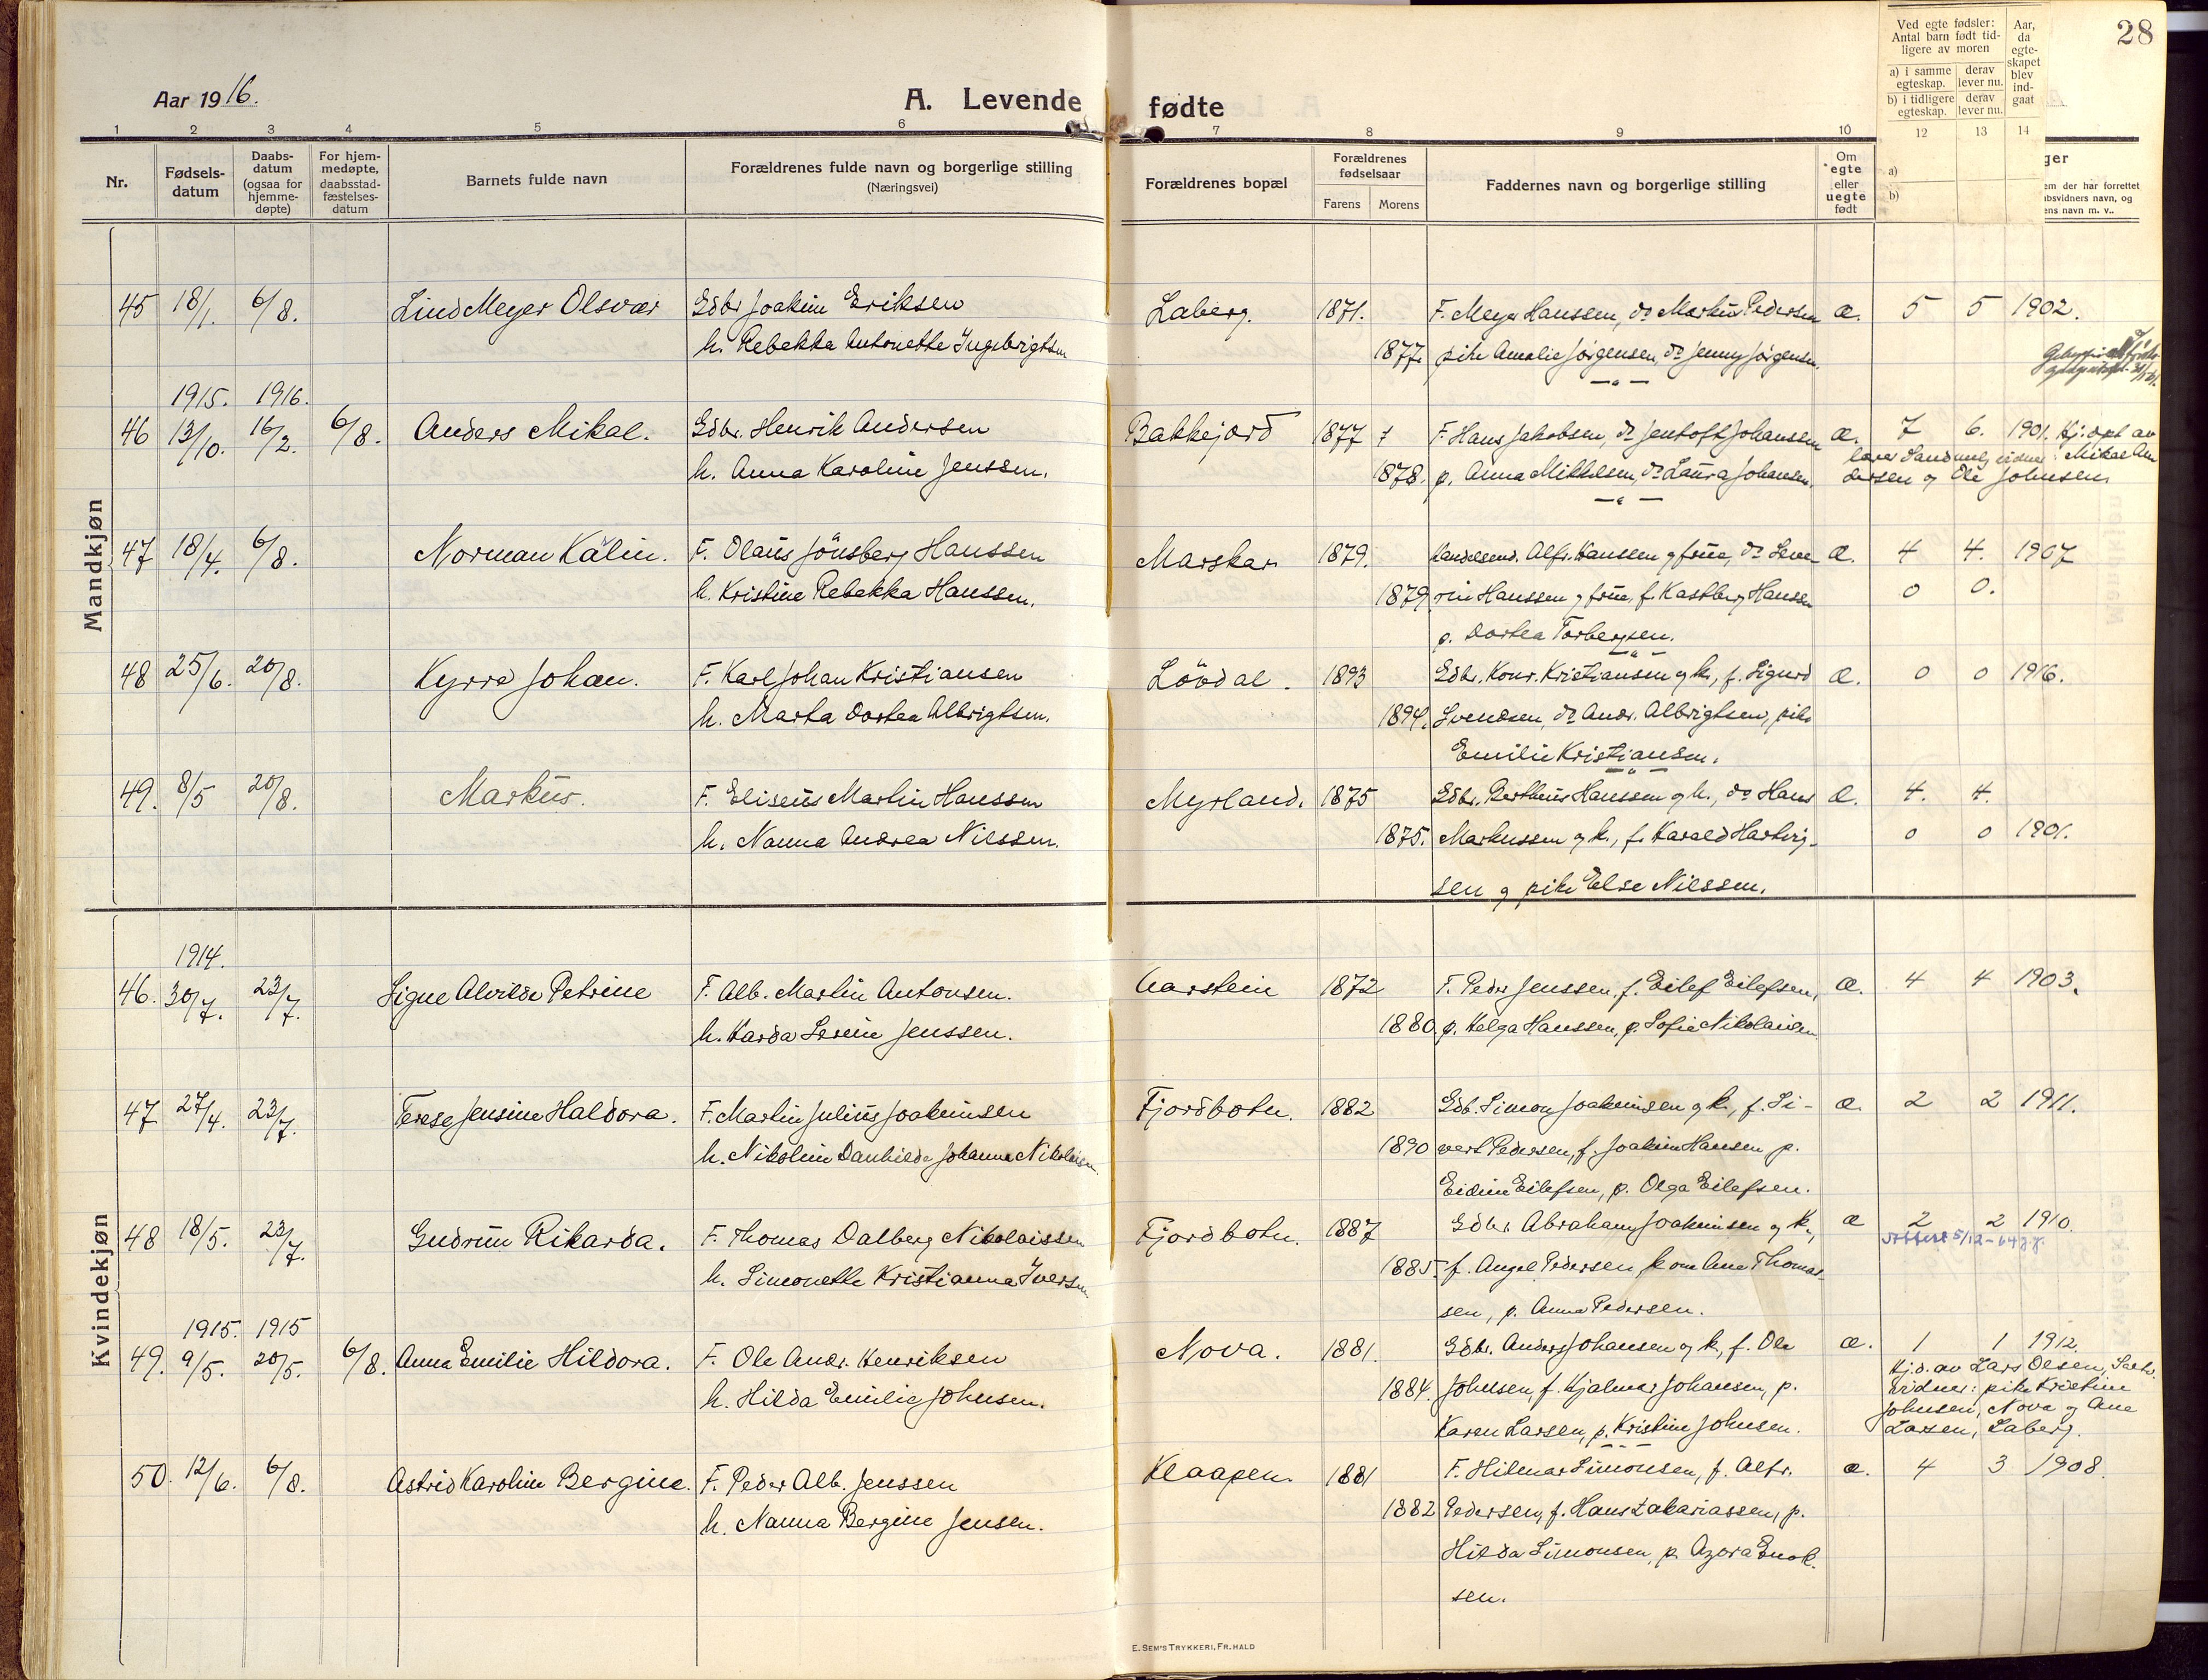 28
Aar 1916.
A. Levende fødte
1 2 3 4 5 6 7 8 9 10 12 13 14
Nr.
Fødsels-datum
Daabs-datum (ogsaa for hjemme-døpte)
For hjem-medøpte, daabsstad-fæstelses-datum
Barnets fulde navn
Forældrenes fulde navn og borgerlige stilling
(Næringsvei)
Forældrenes bopæl
Forældrenes fødselsaar
Farens Morens
Faddernes navn og borgerlige stilling
Om egte eller uegte født
Ved egte fødsler:
Antal barn født tid-
ligere av moren
a) i samme egteskap. derav lever nu.
b) i tidligere egteskap. derav lever nu.
Aar, da egte-skapet blev ind-gaat
a)
b)
ger
em der har forrettet
absvidners navn, og
ens navn m. v..
Mandkjøn
45 18/1. 6/8. Lind Meyer Olsvær Gdbr Joakim Eriksen Laberg. 1871. F. Meyer Hanssen, do Markus Pedersen æ. 5 5 1902.
h. Rebekka Antonette Ingebrigtsen 1877. pike Amalie Jörgensen, do Jenny Jörgensen.
1915. 1916.
46 13/10. 16/2. 6/8. Anders Mikal. Gdbr. Henrik Andersen Bakkejord 1877 F. Hans Jakobsen, do Jentoft Johansen æ. 7 6. 1901. Hj: døpt av
h. Anna Karoline Jenssen. 1878. p. Anna Mikkelsen, do Laura Johansen. Mikal An
dersen og Ole Johnsen.
47 18/4. 6/8. Norman Kålin. F. Olaus Jönsberg Hanssen Marskar 1879. Handelsmd. Alfr. Hanssen og frue, do Seve- æ. 4 4. 1907
h. Kristine Rebekka Hanssen. 1879 rin Hanssen og frue, f. Kastberg Hanssen 0 0.
p. Dortea Torbergsen.
48 25/6. 20/8. Kyrre Johan. F. Karl Johan Kristiansen Lövdal. 1893 Gdbr. Konr. Kristiansen og k., f. Sigurd æ. 0 0 1916.
h. Marta Dortea Albrigtsen. 1894. Svendsen, do Andr. Albrigtsen, pike
Emilie Kristiansen.
49. 8/5 20/8. Markus. F. Eliseus Martin Hanssen Myrland. 1875 Gdbr. Bertheus Hanssen og k., do Hans æ. 4. 4.
h. Nanna Andrea Nilssen. 1875. Markussen og k., f. Harald Hartvig- 0 0 1901.
sen og pike Else Nilssen.
Kvindekjøn
1914.
46. 30/7. 23/7. Signe Alvilde Petrine F. Alb. Martin Antonsen. Aarstein 1872 F. Peder Jenssen, f. Eilef Eilefsen, æ. 4 4 1903.
h. Harda Serine Jenssen. 1880. p. Helga Hanssen, p. Sofie Nikolaisen
47 27/4. 23/7. Terese Jensine Haldora. F. Martin Julius Joakimsen Fjordbotn. 1882 Gdb. Simon Joakimsen og k., f. Si- æ. 2 2 1911.
h. Nikoline Danhilde Johanna Nikolaisen. 1890 vert Pedersen, f. Joakim Hansen p.
Eidine Eilefsen, p. Olga Eilefsen.
48 18/5. 23/7. Gudrun Rikarda. F. Thomas Dalberg Nikolaissen Fjordbotn. 1887 Gdbr. Abraham Joakimsen og k., æ 2 2 1910.
h. Simonette Kristianna Iversen 1885. f. Angel Pedersen, kone Ane Thomas-
sen, p. Anna Pedersen.
1915. 1915
49. 9/5. 20/5. 6/8. Anna Emilie Hildora. F. Ole Andr. Henriksen Nova. 1881. Gdbr. Anders Johansen og k., f. Ole æ. 1 1 1912.
h. Hilda Emilie Johnsen. 1884. Johnsen, f. Hjalmar Johansen, p. Hj.d. av Lars Olsen,
Karen Larsen, p. Kristine Johnsen. vidner: pike Kristine
Johnsen, Nova og Ane
Larsen, Laberg.
50. 12/6. 6/8. Astrid Karoline Bergine. F. Peder Alb. Jenssen Klaapen. 1881 F. Hilmar Simonsen, f. Alfr. æ. 4 3 1908.
h. Nanna Bergine Jensen. 1882 Pedersen, f. Hans Zakariassen, p.
Hilda Simonsen, p. Azora Enok-
sen.
E. SEM'S TRYKKERI, FR. HALD